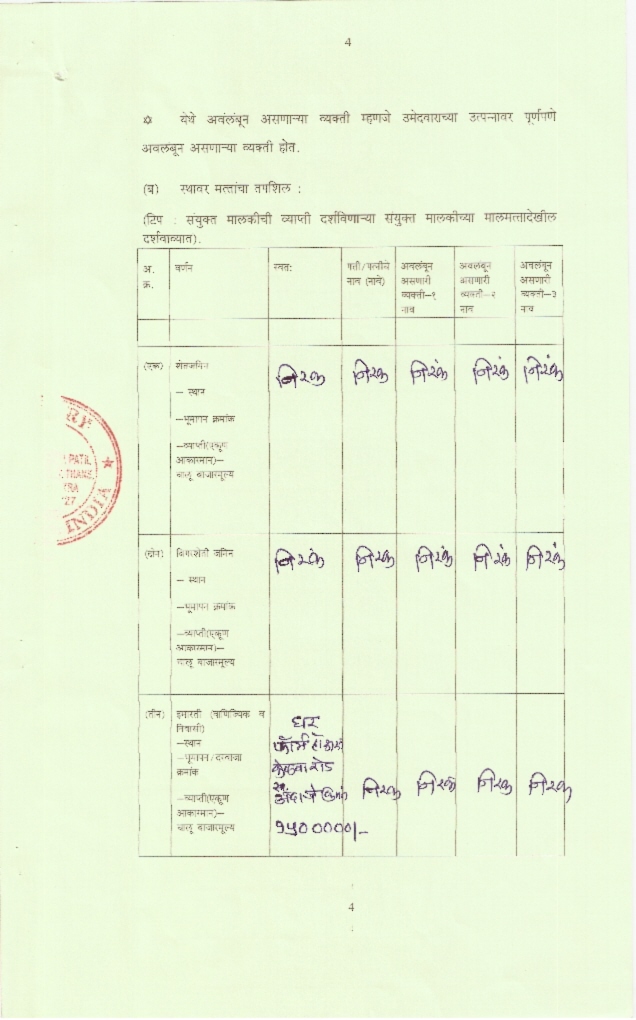 4
✡ येथे अवंलंबून असणाऱ्या व्यक्ती म्हणजे उमेदवाराच्या उत्पन्नावर पूर्णपणे
अवलंबून असणाऱ्या व्यक्ती होत.
(ब) स्थावर मत्तांचा तपशिल :
(टिप : संयुक्त मालकीची व्याप्ती दर्शविणाऱ्या संयुक्त मालकीच्या मालमत्तादेखील
दर्शवाव्यात).
अ. क्र. वर्णन स्वतः पती/पत्नीचे नाव (नावे) अवलंबून असणारी व्यक्ती-१ नाव अवलंबून असणारी व्यक्ती-२ नाव अवलंबून असणारी व्यक्ती-३ नाव
(एक) शेतजमिन निरंक निरंक निरंक निरंक निरंक
– स्थान
–भूमापन क्रमांक
–व्याप्ती(एकूण
आकारमान)–
चालू बाजारमूल्य
(दोन) बिगरशेती जमिन निरंक निरंक निरंक निरंक निरंक
– स्थान
–भूमापन क्रमांक
–व्याप्ती(एकूण
आकारमान)–
चालू बाजारमूल्य
(तीन) इमारती (वाणिज्यिक व
निवासी) घर
–स्थान
–भूमापन/दरवाजा
क्रमांक रोड
–व्याप्ती(एकूण निरंक निरंक निरंक निरंक
आकारमान)–
चालू बाजारमूल्य १५०००००/-
PATIL
THANE
INDIA
4